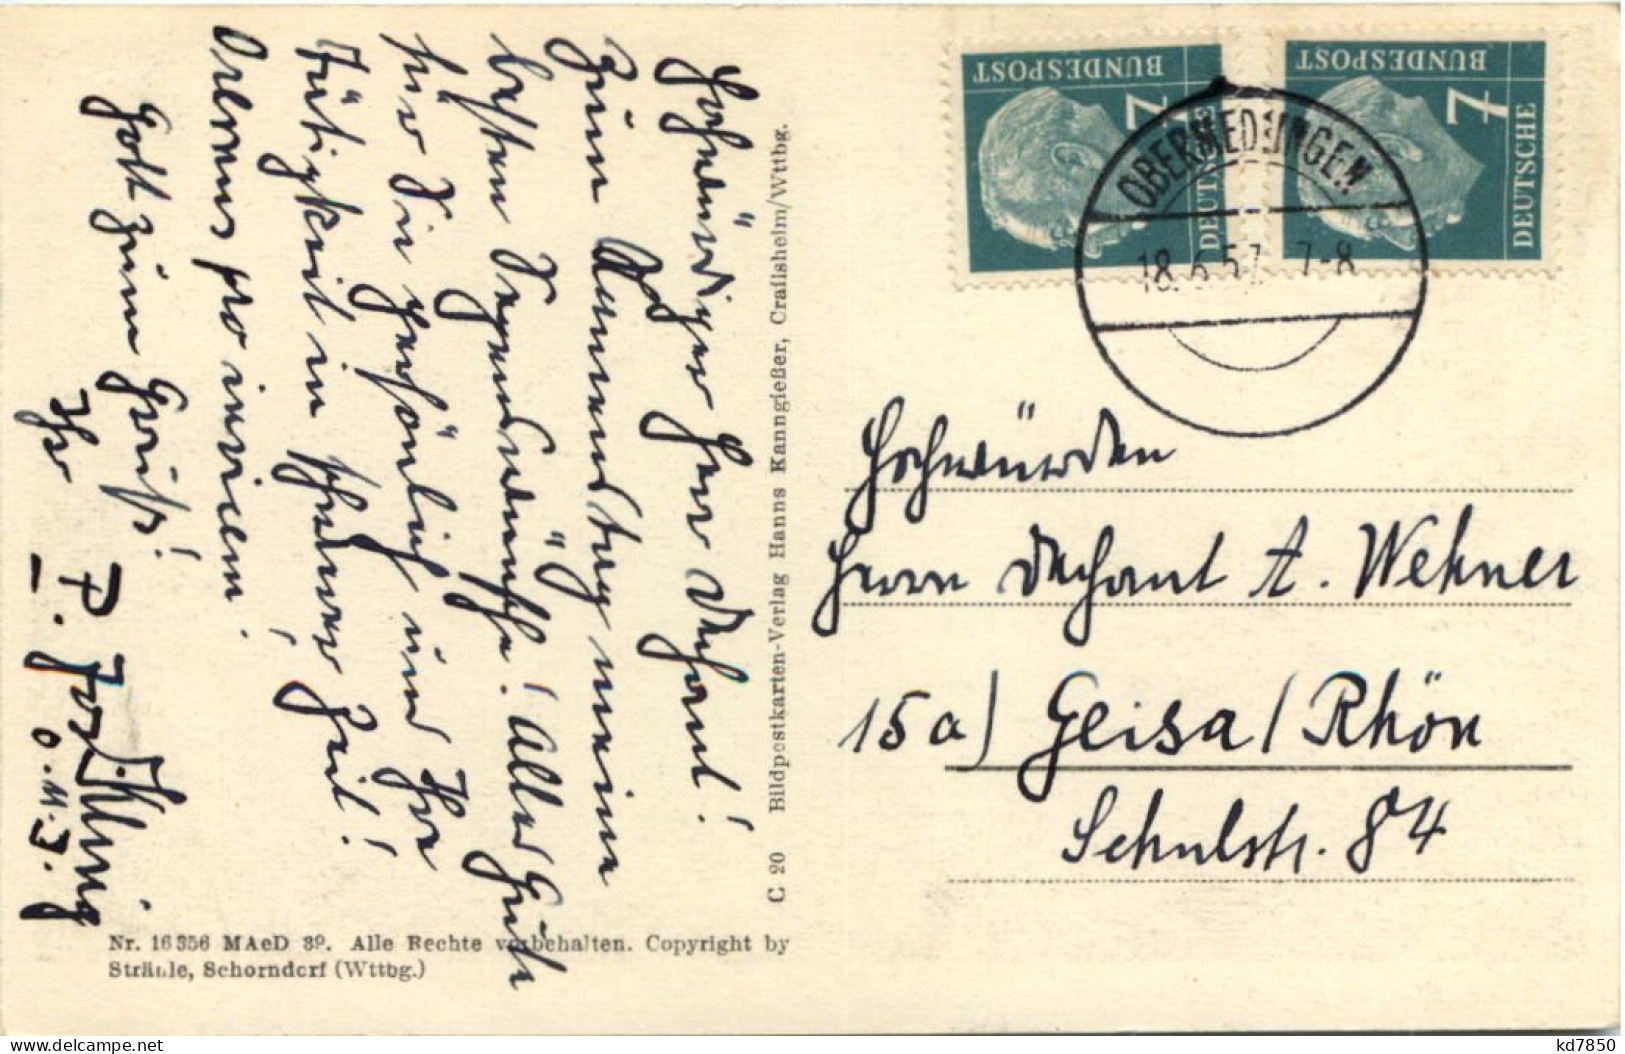 Hochwürdiger Herr Dechant!
Zum Namenstag meine
besten Segenswünsche! Alles Gute
für Sie persönlich und Ihre
Tätigkeit in schwerer Zeit!
Oremus pro invicem!
Gott zum Gruß!
Ihr
P. Jos.
O.M.I.
C 20 Bildpostkarten-Verlag Hanns Kanngießer, Crailsheim/Wttbg.
Nr. 16356 MAeD 39. Alle Rechte vorbehalten. Copyright by
Strähle, Schorndorf (Wttbg.)
DEUTSCHE
BUNDESPOST
7
DEUTSCHE
BUNDESPOST
7
OBERMEDLINGEN
18.6.57 7-8
Hochwürden
Herrn Dechant A. Wehner
15a) Geisa/Rhön
Schulstr. 84
kd7850